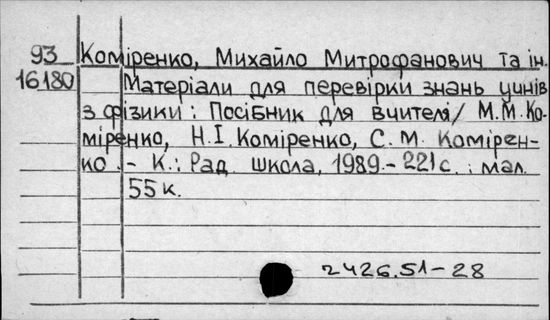 93 Коміренко, Михайло Митрофанович та ін.
16180 Матеріали для перевірки знань учнів
з фізики: Посібник для вчителя / М.М.Ко-
міренко, Н.І.Коміренко, С.М. Комірен-
ко. – К.: Рад. школа, 1989.– 221 с.: мал.
55 к.
2426.51–28